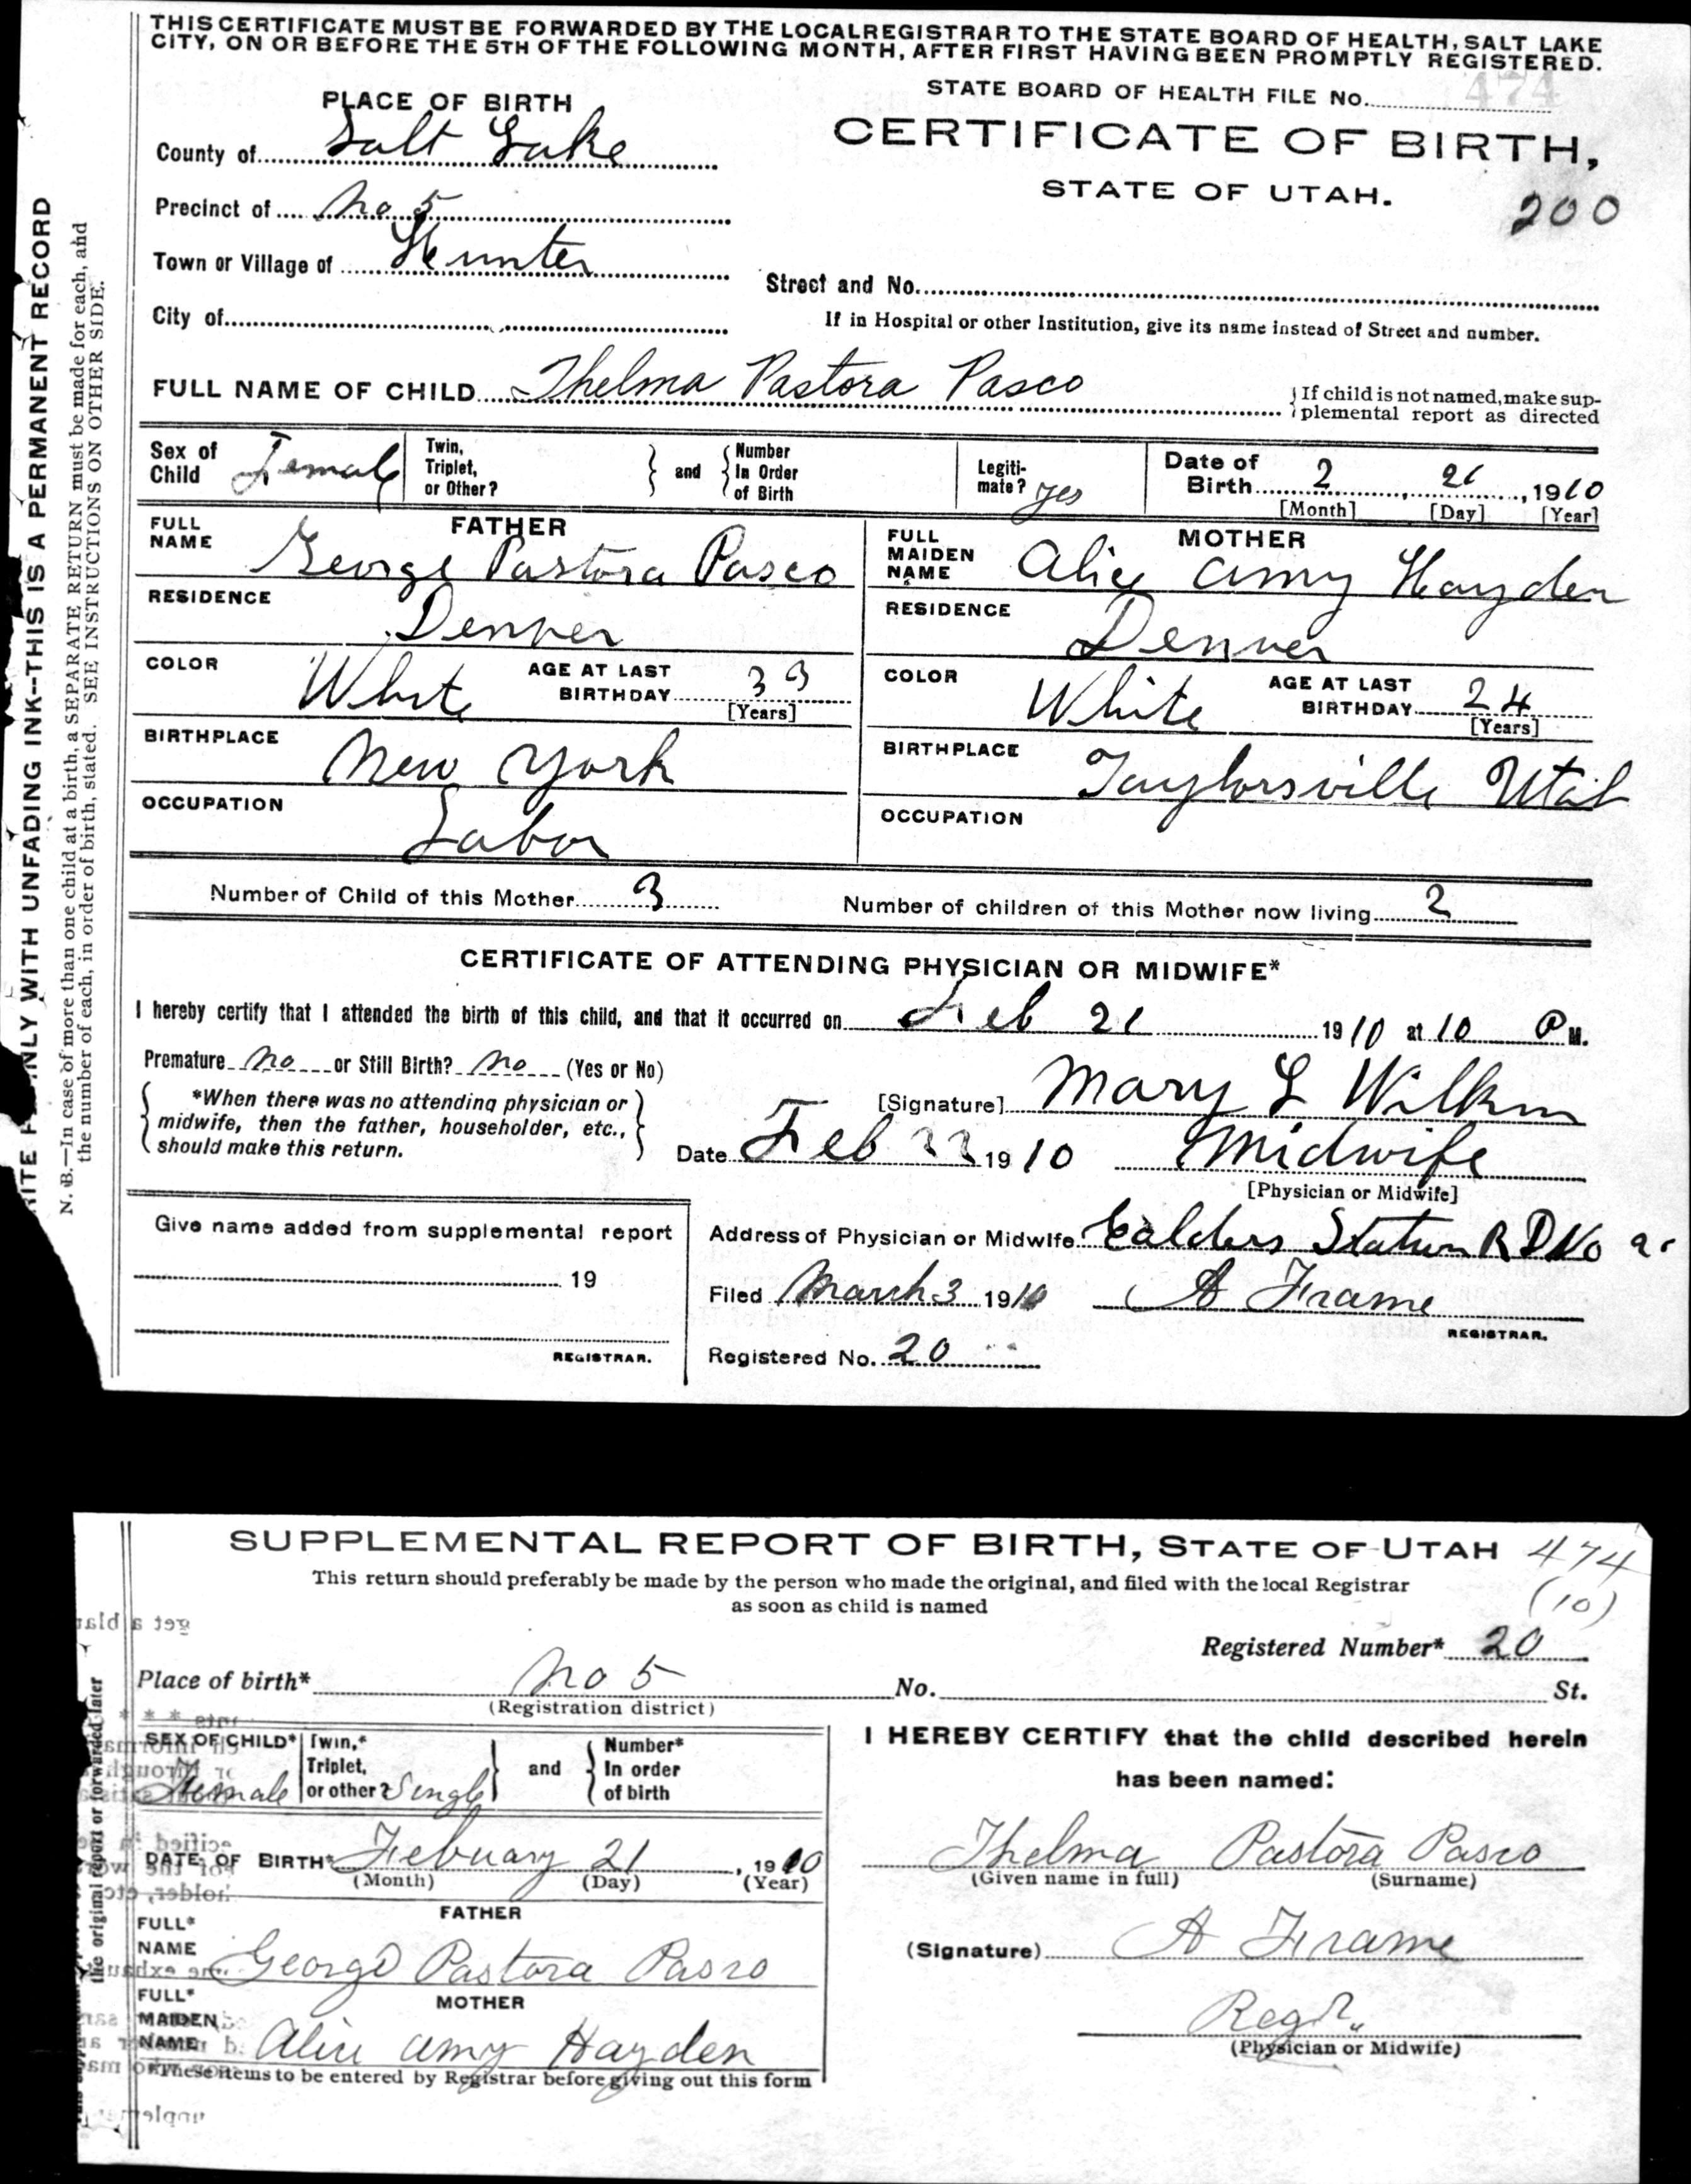 THIS CERTIFICATE MUST BE FORWARDED BY THE LOCAL REGISTRAR TO THE STATE BOARD OF HEALTH, SALT LAKE
CITY, ON OR BEFORE THE 5TH OF THE FOLLOWING MONTH, AFTER FIRST HAVING BEEN PROMPTLY REGISTERED.
STATE BOARD OF HEALTH FILE No. 474
PLACE OF BIRTH
CERTIFICATE OF BIRTH,
County of Salt Lake
STATE OF UTAH.
200
Precinct of No 5
Town or Village of Hunter
Street and No.
City of
If in Hospital or other Institution, give its name instead of Street and number.
FULL NAME OF CHILD Thelma Pastora Pasco
If child is not named, make sup-
plemental report as directed
Sex of Child Female
Twin, Triplet, or Other?
and
Number In Order of Birth
Legiti-mate? yes
Date of Birth 2 21, 1910
[Month] [Day] [Year]
FATHER
FULL NAME George Pastora Pasco
RESIDENCE Denver
COLOR White AGE AT LAST BIRTHDAY 33 [Years]
BIRTHPLACE New York
OCCUPATION Labor
MOTHER
FULL MAIDEN NAME Alice Amy Hayden
RESIDENCE Denver
COLOR White AGE AT LAST BIRTHDAY 24 [Years]
BIRTHPLACE Taylorsville Utah
OCCUPATION
Number of Child of this Mother 3 Number of children of this Mother now living 2
CERTIFICATE OF ATTENDING PHYSICIAN OR MIDWIFE*
I hereby certify that I attended the birth of this child, and that it occurred on Feb 21 1910 at 10 P M.
Premature no or Still Birth? no (Yes or No)
*When there was no attending physician or
midwife, then the father, householder, etc.,
should make this return.
[Signature] Mary L
Date Feb 22 1910 Midwife
[Physician or Midwife]
Give name added from supplemental report
19
REGISTRAR.
Address of Physician or Midwife Calders Station R D No
Filed March 3 1910 A Frame
REGISTRAR.
Registered No. 20
WITH UNFADING INK--THIS IS A PERMANENT RECORD
N. B.—In case of more than one child at a birth, a SEPARATE RETURN must be made for each, and
the number of each, in order of birth, stated. SEE INSTRUCTIONS ON OTHER SIDE.
SUPPLEMENTAL REPORT OF BIRTH, STATE OF UTAH 474
(10)
This return should preferably be made by the person who made the original, and filed with the local Registrar
as soon as child is named
Registered Number* 20
Place of birth* No 5 No. St.
(Registration district)
SEX OF CHILD* Female
Twin,* Triplet, or other? Single
and
Number* In order of birth
DATE OF BIRTH* Febuary 21, 1910
(Month) (Day) (Year)
FATHER
FULL* NAME George Pastora Pasco
MOTHER
FULL* MAIDEN NAME Alice Amy Hayden
*These items to be entered by Registrar before giving out this form
I HEREBY CERTIFY that the child described herein
has been named:
Thelma Pastora Pasco
(Given name in full) (Surname)
(Signature) A Frame
Regr.
(Physician or Midwife)
the original report or forwarded later